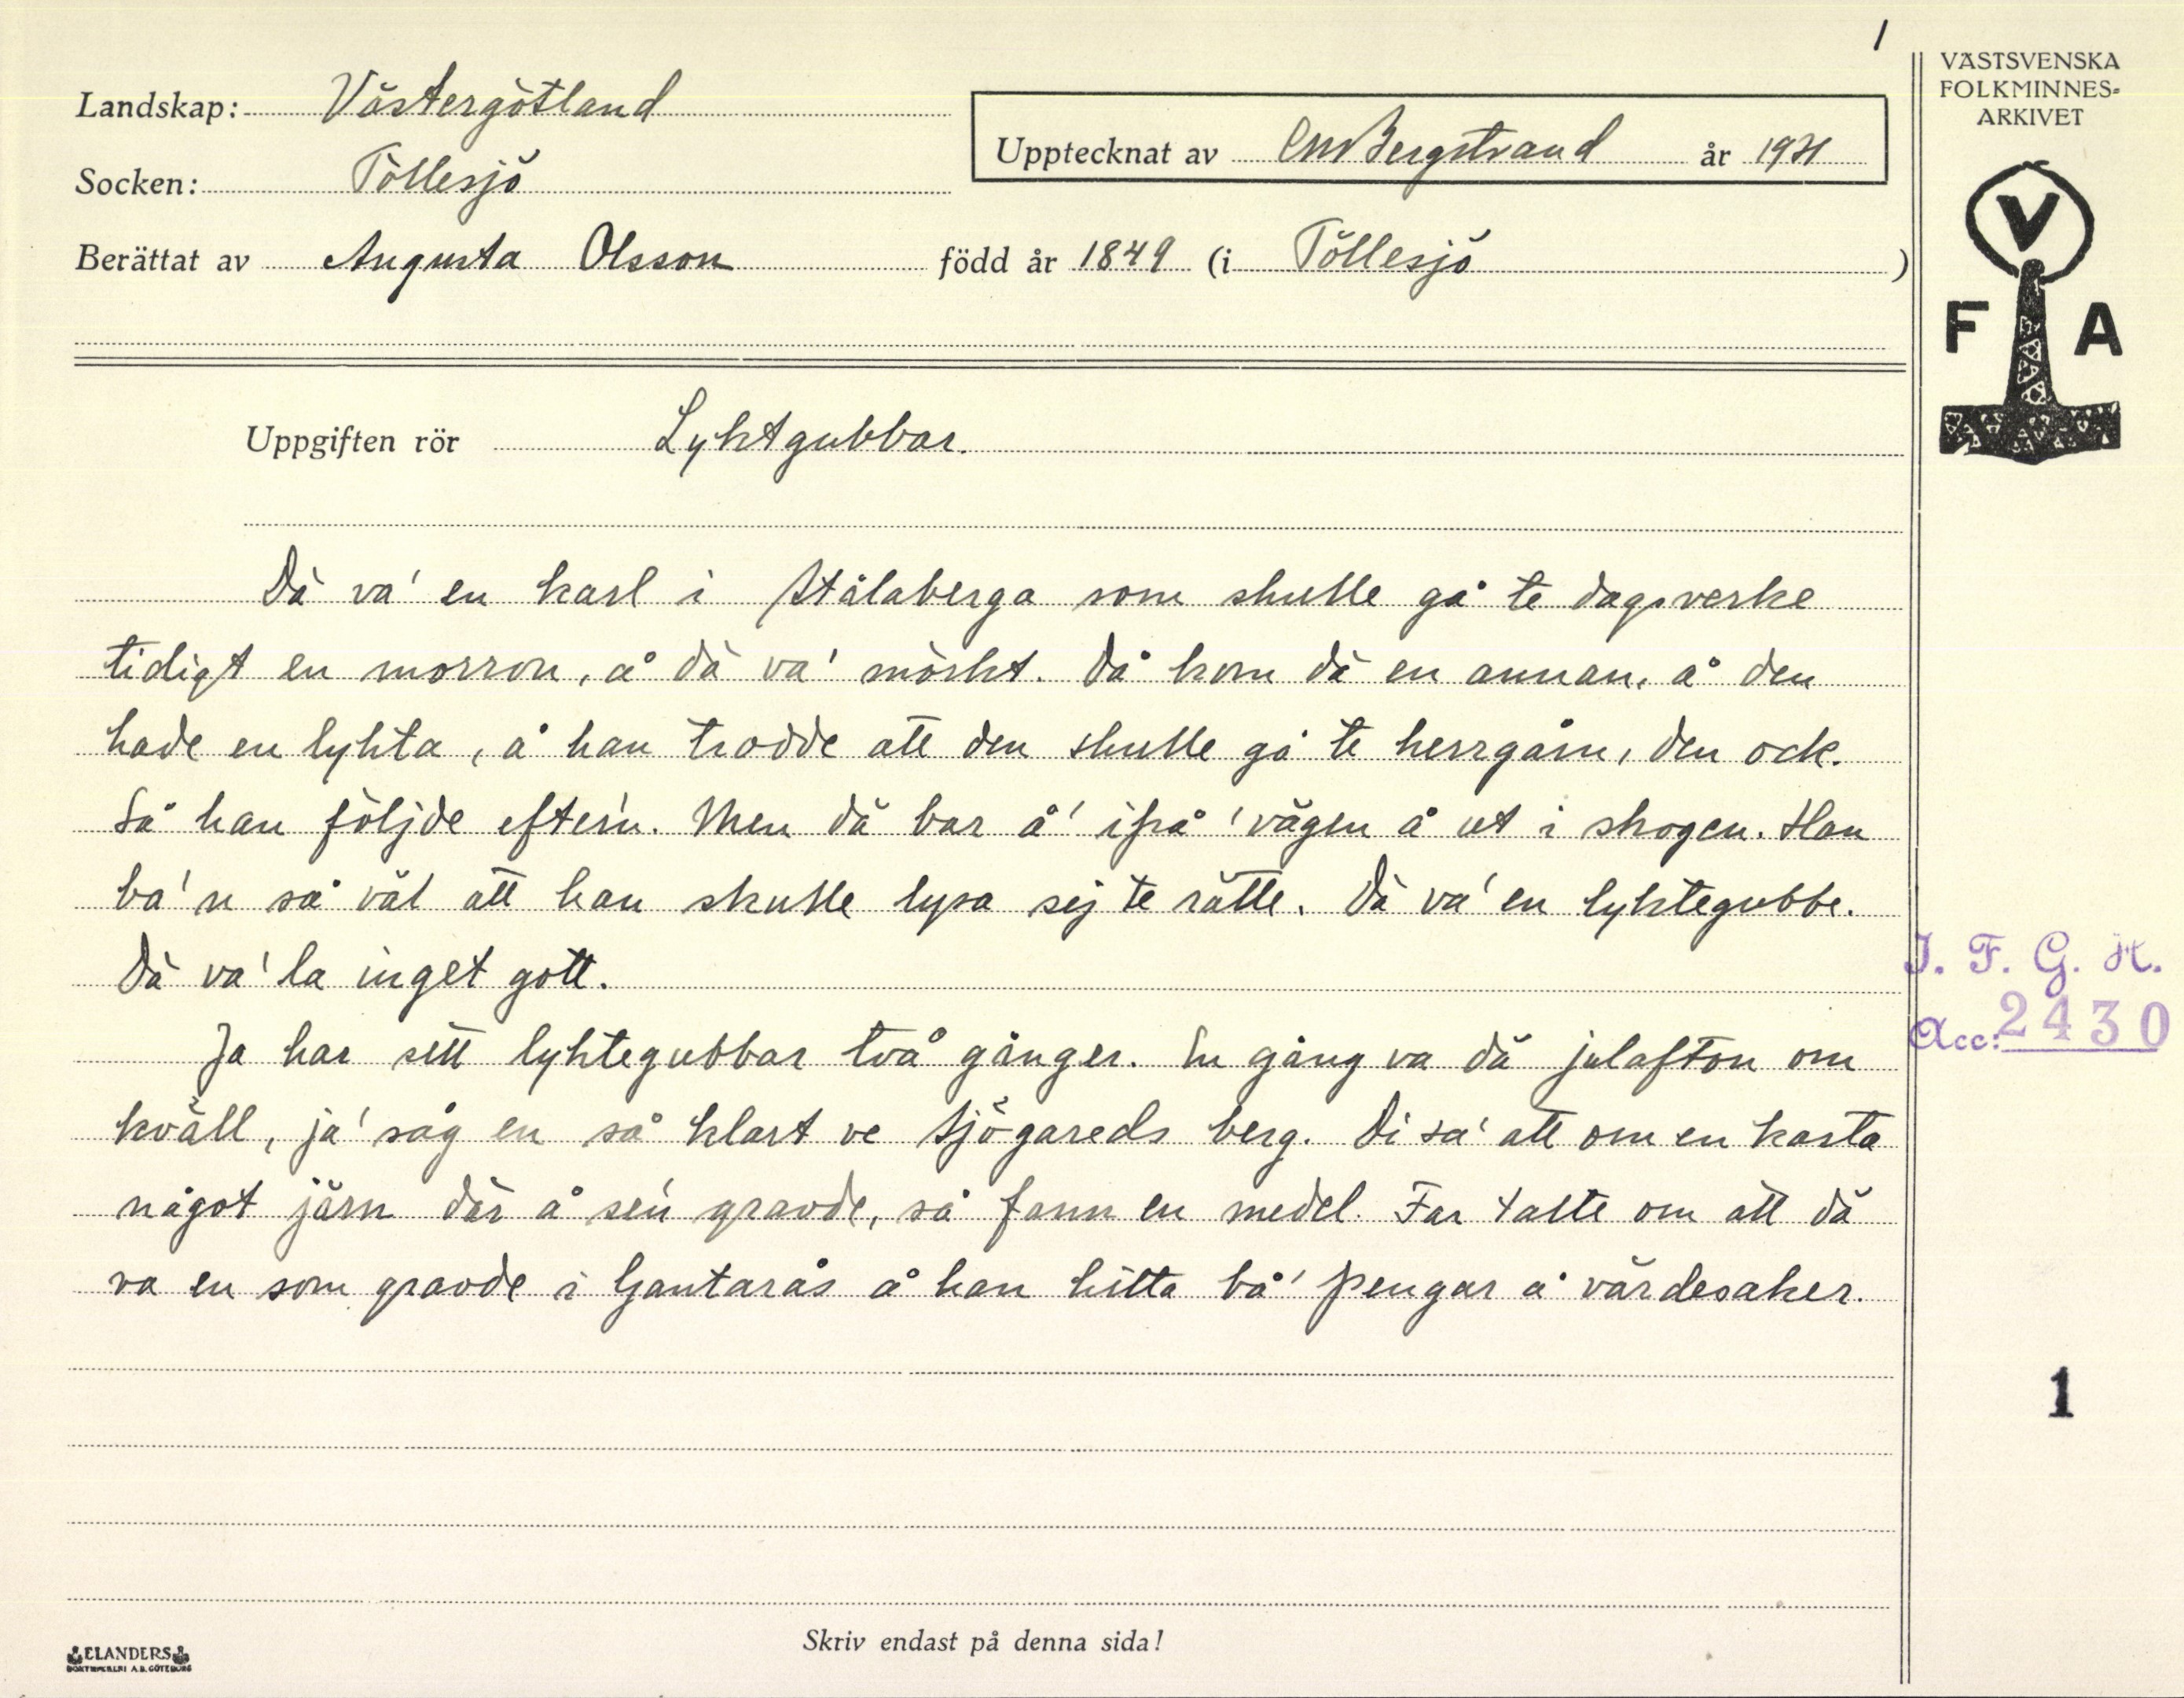 1
Landskap: Västergötland
Socken: Töllesjö
Upptecknat av CM Bergstrand år 1931
Berättat av Augusta Olsson född år 1849 (i Töllesjö )
VÄSTSVENSKA
FOLKMINNES-
ARKIVET
V
F A
Uppgiften rör Lyktgubbar.
Dä va' en karl i Stålaberga som skulle gå te dagsverke
tidigt en morron, å dä va' mörkt. Då kom dä en annan, å den
hade en lykta, å han trodde att den skulle gå te herrgårn, den ock.
Så han följde efter'n. Men dä bar å' ifrå' vägen å ut i skogen. Han
ba'n så väl att han skulle lysa sej te rätte. Dä va' en lyktegubbe.
Dä va' la inget gott.
Ja har sett lyktegubbar två gånger. En gång va dä julafton om
kväll, ja' såg en så klart ve Sjögareds berg. Di sa' att om en kasta
något järn där å sen gravde, så fann en medel. Far talte om att dä
va en som gravde i Gantarås å han hitta bå' pengar å värdesaker.
I. F. G. H.
Acc: 2430
1
Skriv endast på denna sida!
ELANDERS
BOKTRYCKERI A.B. GÖTEBORG